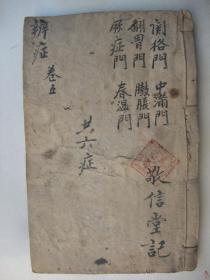 辨症 卷五
關格門 中滿門
翻胃門 臌脹門
麻症門 春温門
共六症
敬信堂記